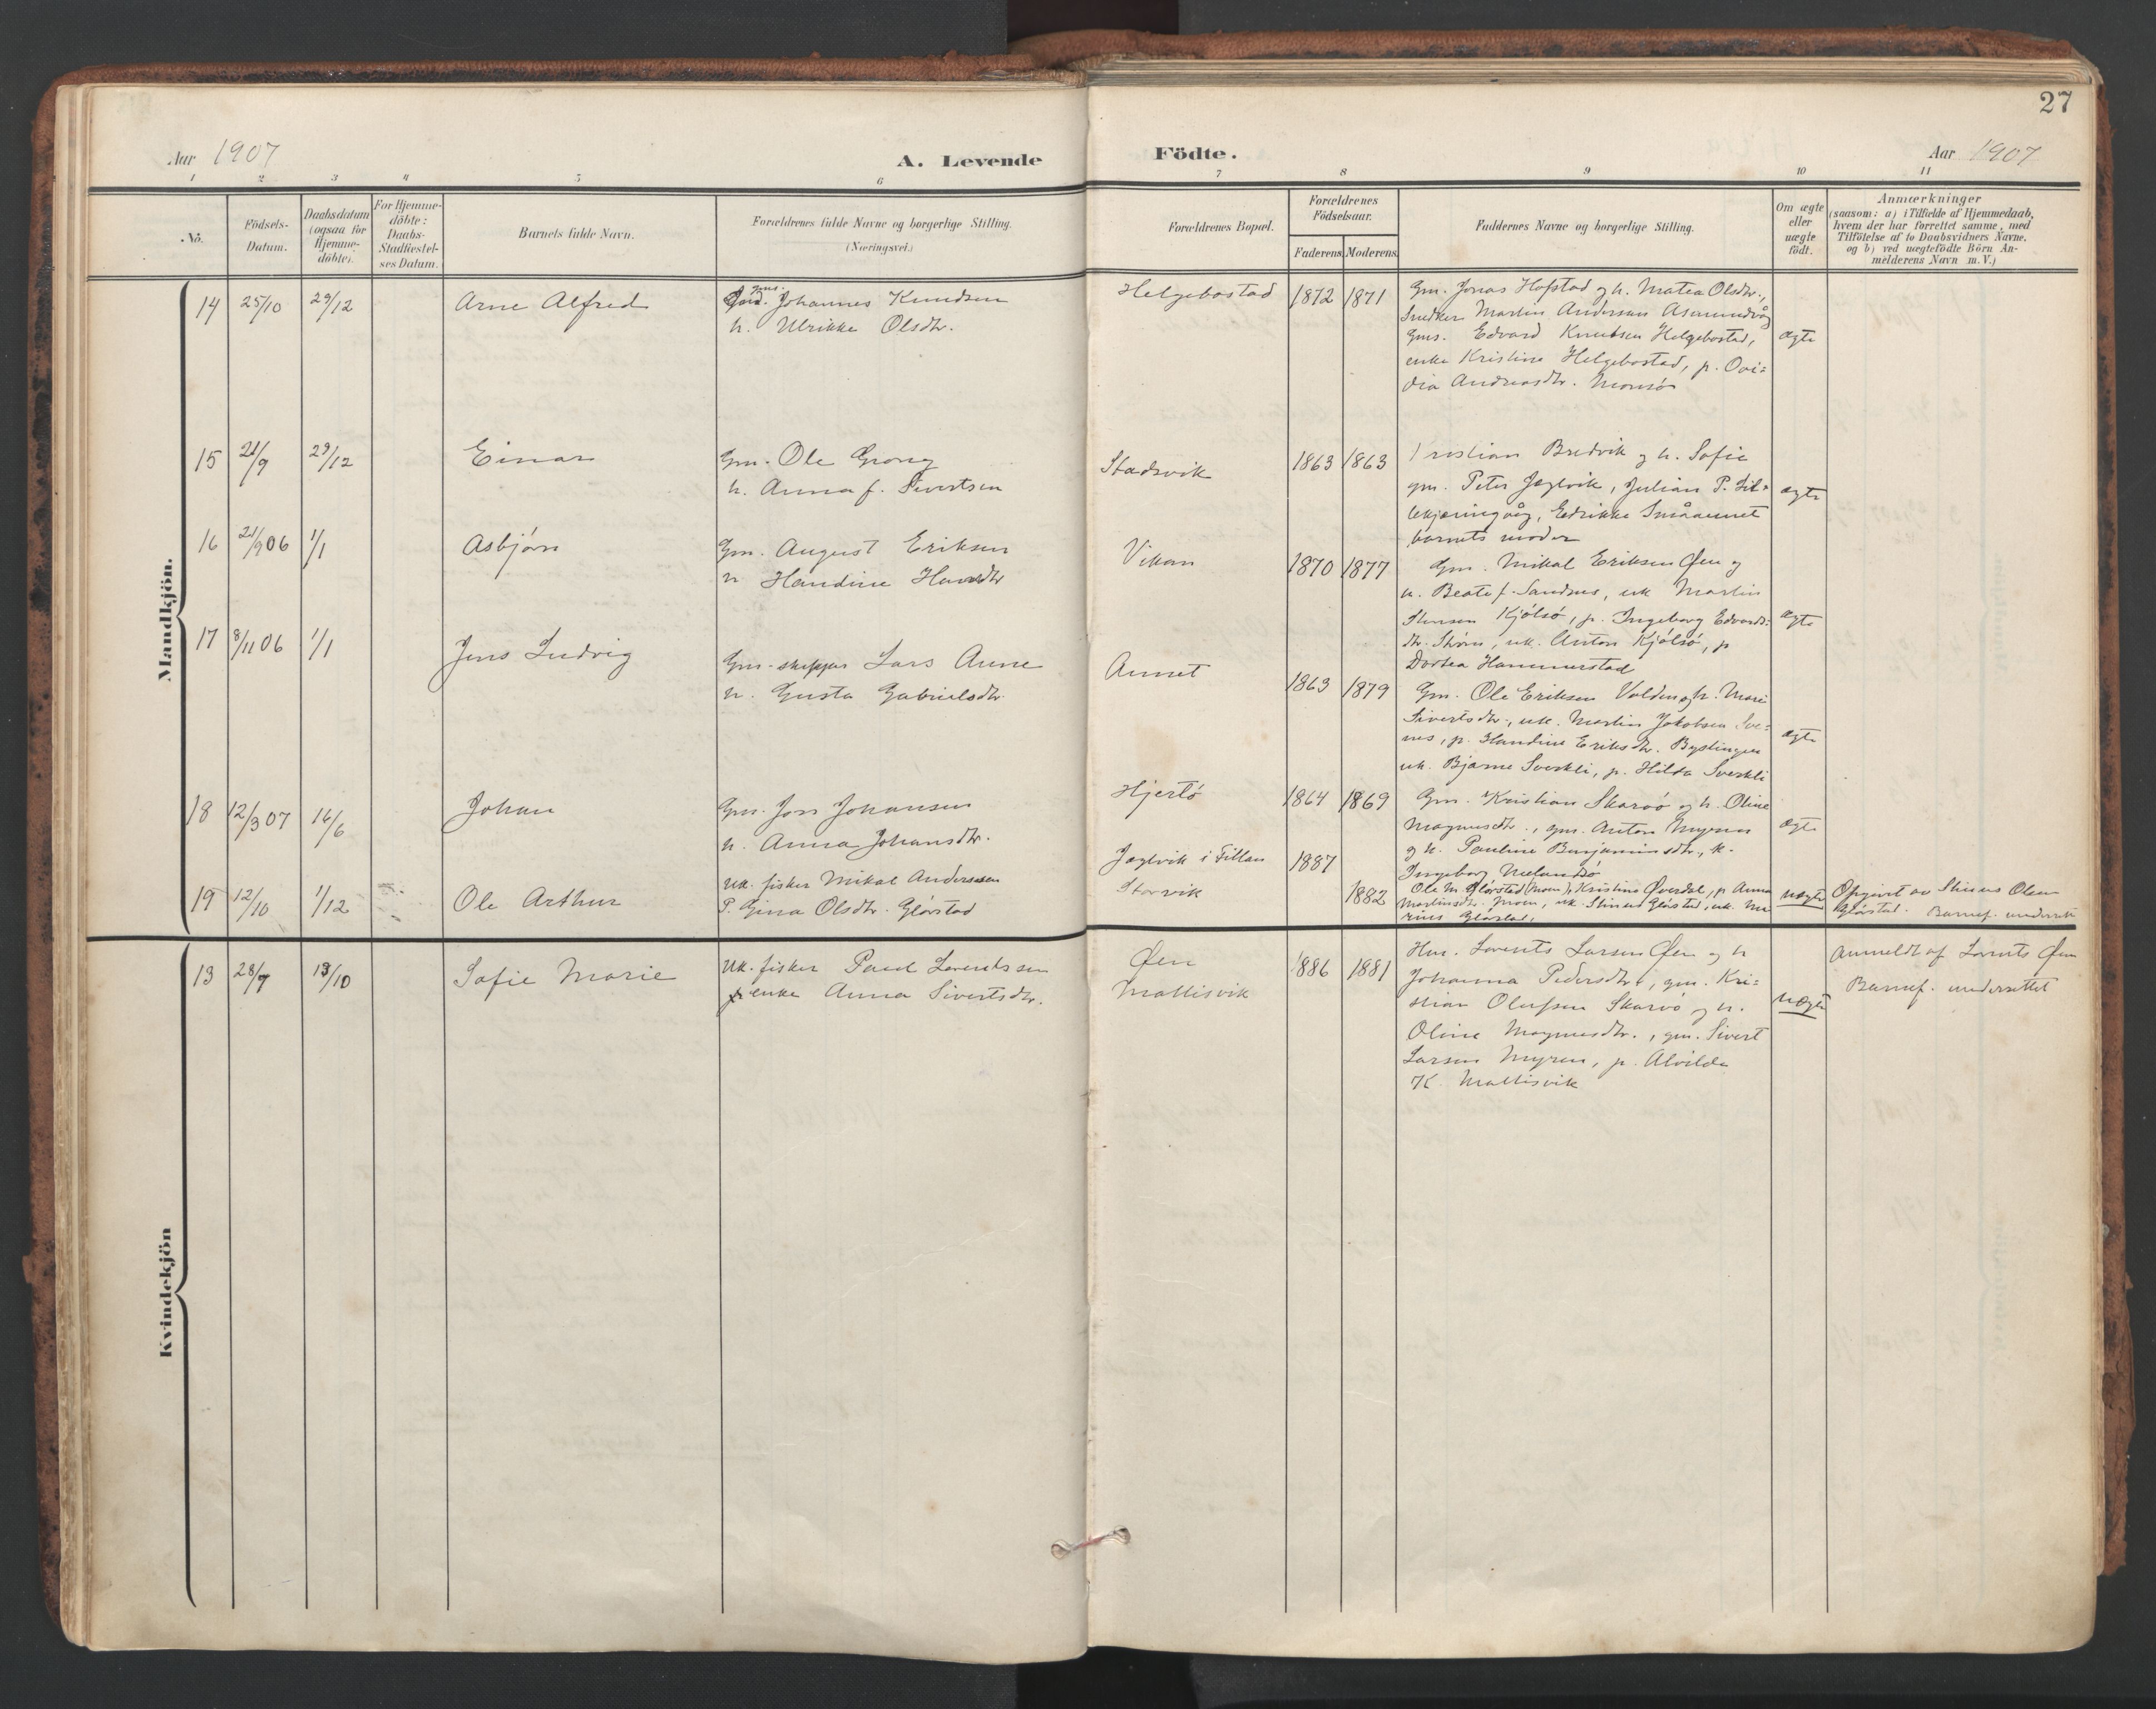 27
Aar 1907
A. Levende
Födte.
Aar 1907
1 2 3 4 5 6 7 8 9 10 11
No.
Födsels-
Datum.
Daabsdatum
(ogsaa for
Hjemme-
döbte).
For Hjemme-
döbte:
Daabs-
Stadfæstel-
ses Datum.
Barnets fulde Navn.
Forældrenes fulde Navne og borgerlige Stilling.
(Næringsvei.)
Forældrenes Bopæl.
Forældrenes
Födselsaar.
Faderens Moderens
Faddernes Navne og borgerlige Stilling.
Om ægte
eller
uægte
födt.
Anmærkninger
(saasom: a) i Tilfælde af Hjemmedaab,
hvem der har forrettet samme, med
Tilföielse af to Daabsvidners Navne.
og b) ved uægtefödte Börn An-
melderens Navn m. V.)
Mandkjön.
14 25/10 29/12 Arne Alfred
gms. Johannes Knudsen
h. Ulrikke Olsdtr.
Helgebostad 1872 1871
Gm. Jonas Hofstad og h. Matea Olsdtr.,
Snedker Martin Anderssen Asmundvåg
gms. Edvard Knudsen Helgebostad,
enke Kristine Helgebostad, p. Ovi-
dia Andreasdtr. Monsø
ægte
15 21/9 29/12 Einar
Gm. Ole Grong
h. Anna f. Sivertsen
Stadsvik 1863 1863
Kristian Bredvik og h. Sofie
gm. Peter Jøglvik, Julian P. Sil-
lekjæringvåg, Edrikke Småaunet
barnets moder
ægte
16 21/9 06 1/1 Asbjørn
Gm. August Eriksen
h. Handine
Vikan 1870 1877
Gm. Mikal Eriksen Øen og
h. Beate f. Sandnes, uk Martin
Kjølsø, p. Ingeborg Edvards-
dtr. Strøm, uk. Anton Kjølsø, p
Dortea Hammerstad
ægte
17 8/11 06 1/1 Jens Ludvig
Gm-skipper Lars Aune
h. Gusta Gabrielsdtr.
Aunet 1863 1879
Gm. Ole Eriksen Volden og h. Mari
Sivertsdtr., uk. Martin Jakobsen
nes, p. Handine Eriksdtr. Bystingen
uk. Bjarne Sverkli, p. Hilda Sverkli
ægte
18 12/3 07 16/6 Johan
Gm. Jon Johansen
h. Anna Johansdtr.
Hjertø 1864 1869
Gm. Kristian Skarsø og h. Oline
Magnusdtr., gm. Anton Myren
og h. Pauline Benjaminsdtr., k.
Ingeborg Melandsø
ægte
19 12/10 1/12 Ole Arthur
Uk. fisker Mikal Anderssen
P. Gina Olsdtr. Glørstad
Jøglvik i Fillan 1887
Storvik 1882
Ole M. Glørstad (Moen), Kristine Øverdal, p. Anna
Martinsdtr. Moen, uk. Stinus Glørstad, uk. Ma-
rius Glørstad.
uægte
Opgivet av Stinus Olsen
Glørstad. Barnef. underrett
Kvindekjön
13 28/7 13/10 Sofie Marie
Uk. fisker Paul Lorentssen
enke Anna Sivertsdtr.
Øen 1886 1881
Mallisvik
Hm. Lorents Larsen Øen og h
Johanna Pedersdtr., gm. Kri-
stian Olufsen Skarsø og h.
Oline Magnusdtr., gm. Sivert
Larsen Myren, p. Alvilde
K. Mallisvik
uægte
Anmeldt af Lornts Øen
Barnef. underrettet